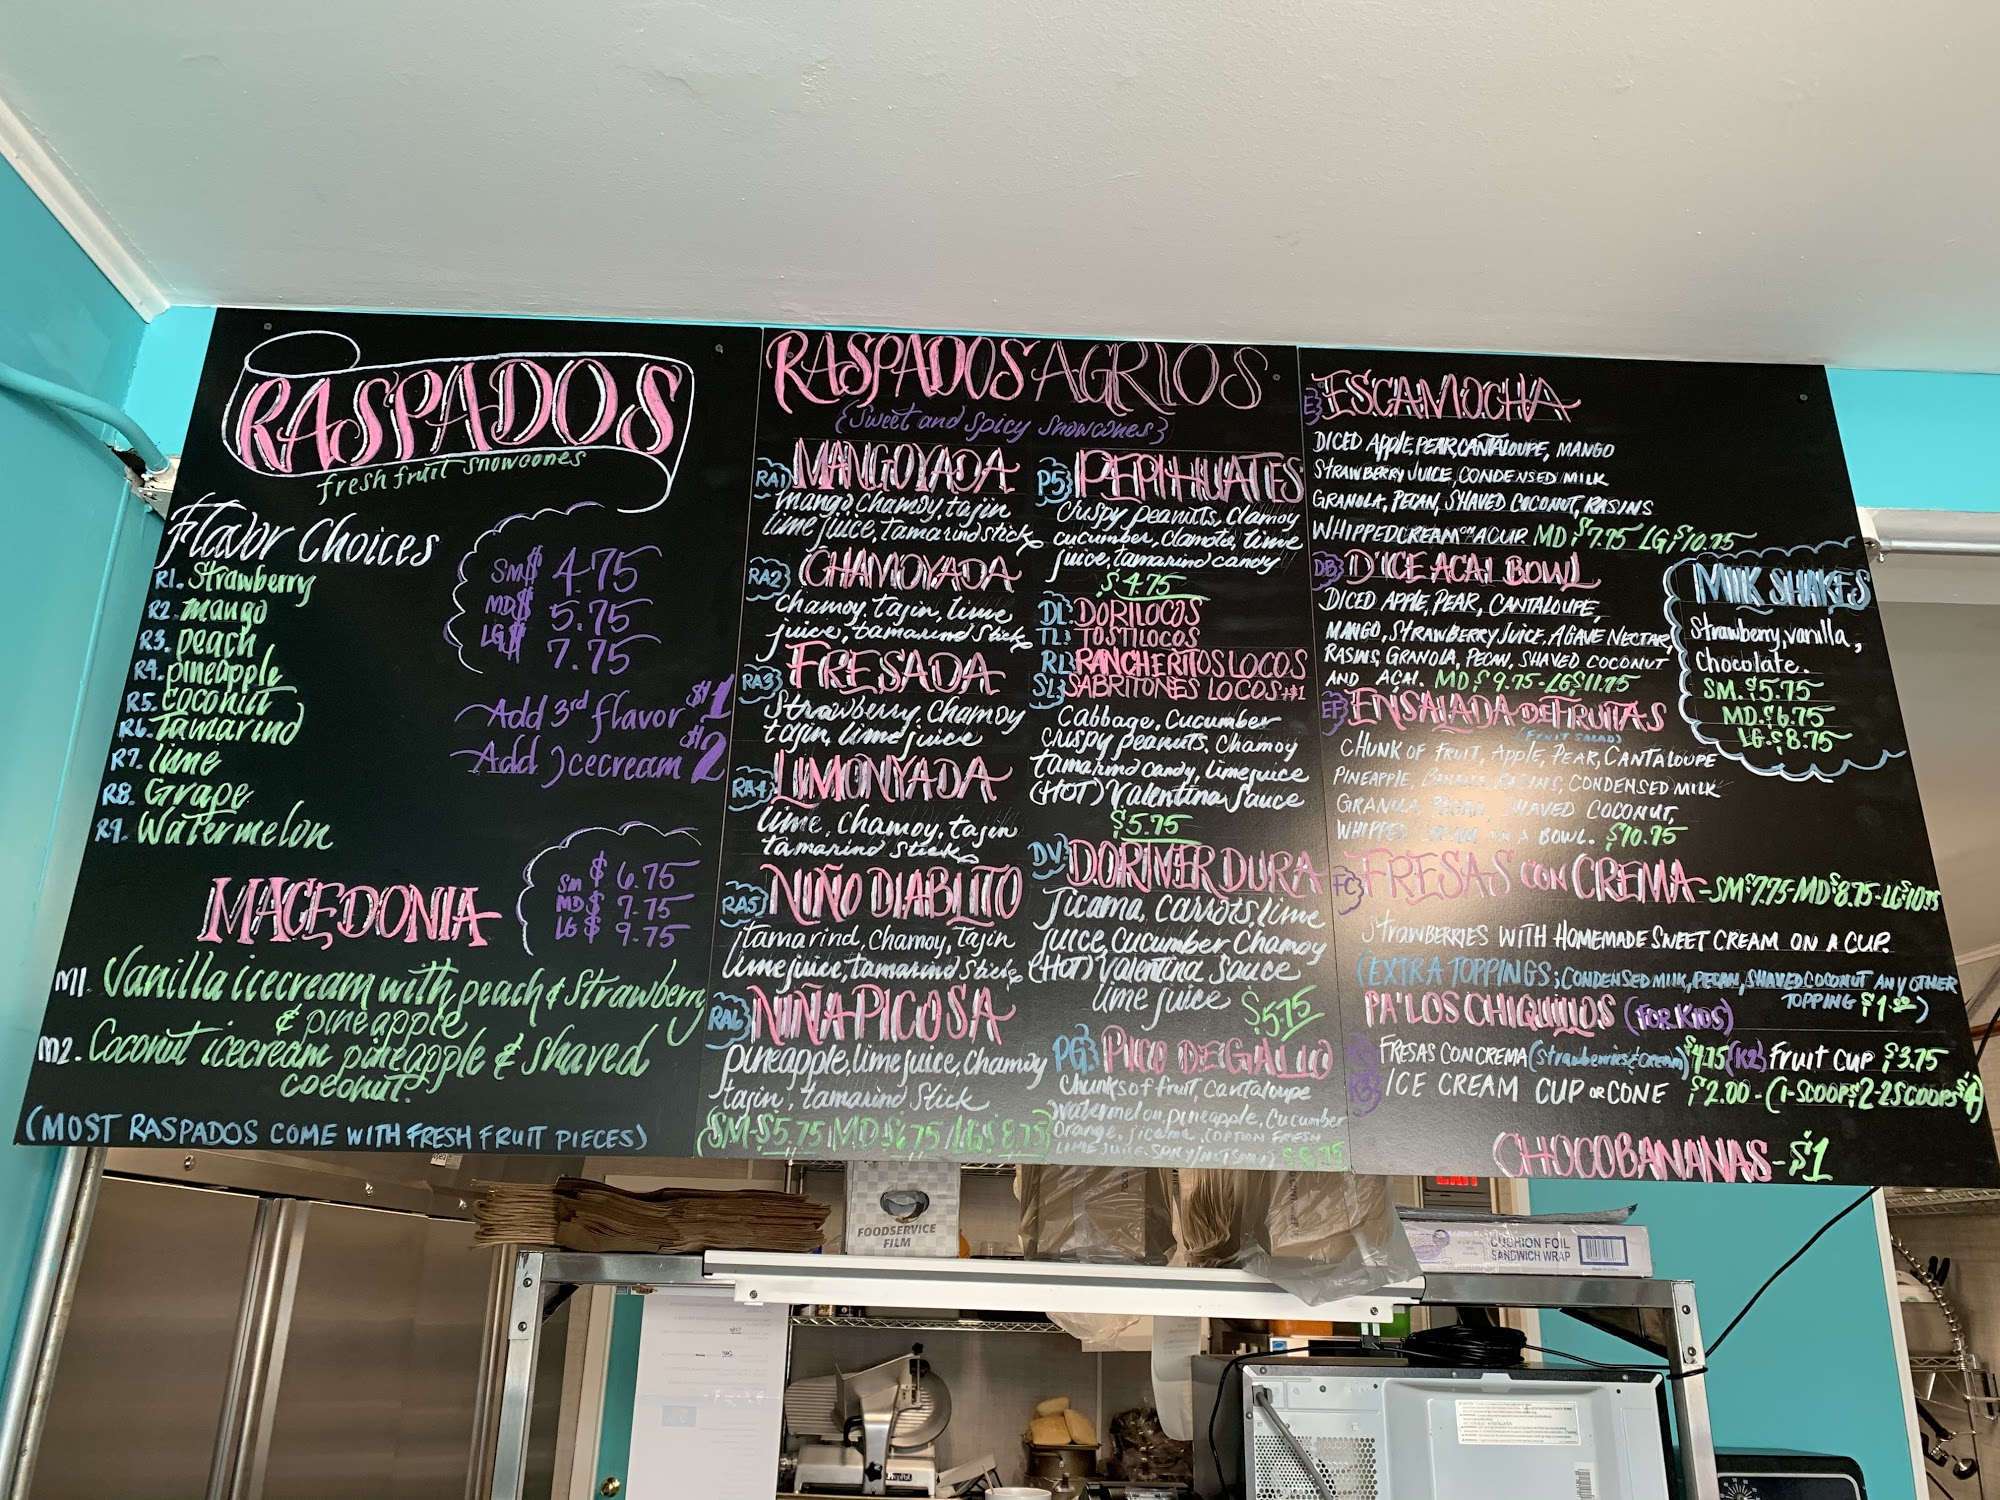 RASPADOS
fresh fruit snowcones
Flavor Choices
R1. Strawberry
R2. mango
R3. peach
R4. pineapple
R5. coconut
R6. Tamarind
R7. lime
R8. Grape
R9. Watermelon
SM $ 4.75
MD $ 5.75
LG $ 7.75
Add 3rd flavor $1
Add Icecream $2
MACEDONIA
SM $ 6.75
MD $ 7.75
LG $ 9.75
M1. Vanilla icecream with peach & Strawberry
& pineapple
M2. Coconut icecream pineapple & shaved
coconut.
(MOST RASPADOS COME WITH FRESH FRUIT PIECES)
RASPADOS AGRIOS
{Sweet and Spicy snowcones}
RA1} MANGOYADA
mango, Chamoy, tajin
lime juice, tamarind stick
RA2} CHAMOYADA
Chamoy, tajin, lime
juice, tamarind stick
RA3} FRESADA
Strawberry, Chamoy
tajin, lime juice
RA4} LIMONYADA
lime, Chamoy, tajin
tamarind stick
RA5} NIÑO DIABLITO
tamarind, Chamoy, Tajin
lime juice, tamarind stick
RA6} NIÑA PICOSA
pineapple, lime juice, Chamoy
tajin, tamarind stick
(SM-$5.75 MD $6.75 LG $8.75)
P5} PEPIHUATES
Crispy peanuts, Chamoy
cucumber, clamato, lime
juice, tamarind candy
$4.75
DL: DORILOCOS
TL: TOSTILOCOS
RL} RANCHERITOS LOCOS
SL} SABRITONES LOCOS +$1
Cabbage, Cucumber
Crispy peanuts, Chamoy
tamarind candy, lime juice
(HOT) Valentina Sauce
$5.75
DV} DORIVERDURA
Jicama, Carrots, lime
juice, Cucumber Chamoy
(HOT) Valentina Sauce
lime juice $5.75
PG} PICO DE GALLO
Chunks of fruit, Cantaloupe
Watermelon, pineapple, Cucumber
Orange, jicama, (OPTION FRESH
LIME JUICE, SPICY/NOT SPICY) $6.75
E} ESCAMOCHA
DICED APPLE, PEAR, CANTALOUPE, MANGO
STRAWBERRY JUICE, CONDENSED MILK
GRANOLA, PECAN, SHAVED COCONUT, RASINS
WHIPPED CREAM ON A CUP. MD $7.95 LG $10.75
DB} D'ICE ACAI BOWL
DICED APPLE, PEAR, CANTALOUPE,
MANGO, STRAWBERRY JUICE, AGAVE NECTAR,
RASINS, GRANOLA, PECAN, SHAVED COCONUT
AND AÇAI. MD $9.75-LG $11.75
MILK SHAKES
Strawberry, vanilla,
Chocolate.
SM. $5.75
MD. $6.75
LG. $8.75
EF} ENSALADA DE FRUITAS
(FRUIT SALAD)
CHUNK OF FRUIT, APPLE, PEAR, CANTALOUPE
PINEAPPLE, BANANA RASINS, CONDENSED MILK
GRANOLA, PECAN, SHAVED COCONUT,
WHIPPED CREAM ON A BOWL. $10.75
FC} FRESAS CON CREMA - SM $7.75-MD $8.75-LG $10.75
STRAWBERRIES WITH HOMEMADE SWEET CREAM ON A CUP.
(EXTRA TOPPINGS: CONDENSED MILK, PECAN, SHAVED COCONUT ANY OTHER
TOPPING $1.00)
PA'LOS CHIQUILLOS (FOR KIDS)
FRESAS CON CREMA (strawberries & cream) $4.75 (K2) FRUIT CUP $3.75
K3} ICE CREAM CUP OR CONE $2.00 - (1-SCOOP $2-2 SCOOPS $4)
CHOCOBANANAS - $1
FOODSERVICE
FILM
EXIT
CUSHION FOIL
SANDWICH WRAP